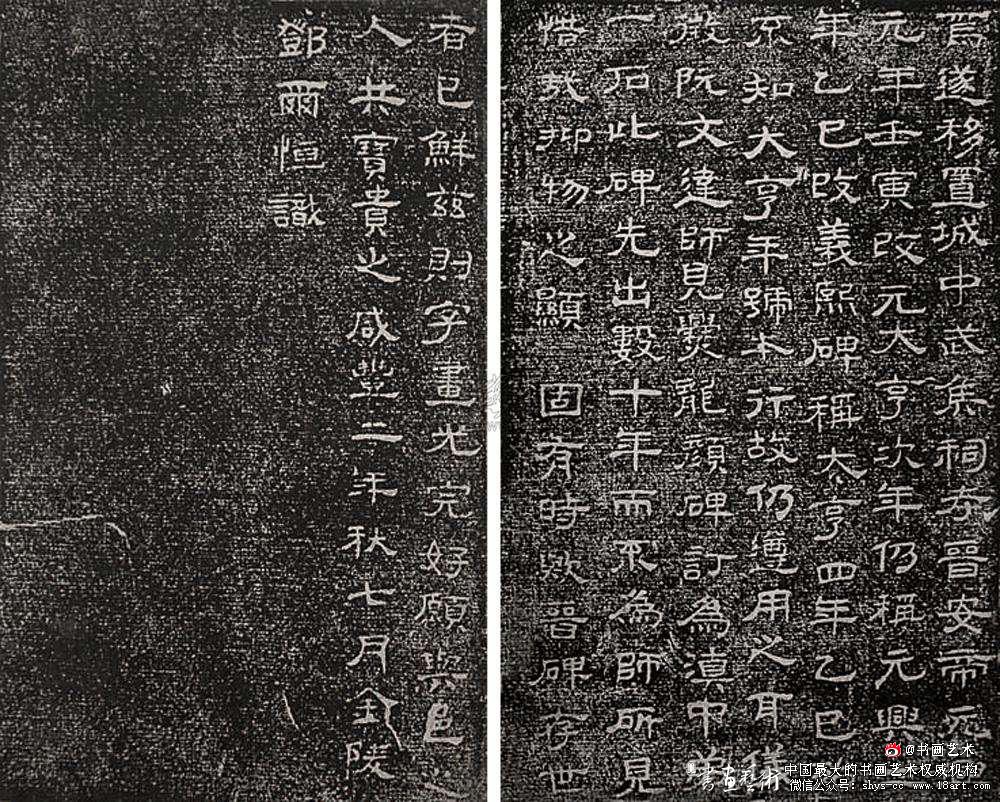 焉遂移置城中武矦祠考晉安帝元
元年壬寅改元大亨次年仍稱元興
年乙巳改義熙碑稱大亨四年乙巳
不知大亨年號未行故仍遵用之耳儀
徵阮文達師見爨龍顏碑訂為滇中第
一石此碑先出數十年而不為師所見
惜哉抑物之顯固有時歟晉碑存世
者已鮮茲則字畫尤完好願與邑之
人共寶貴之咸豐二年秋七月金陵
鄧爾恒識
@书画艺术
书画艺术 中国最大的书画艺术权威机构
微信公众号: shys-cc www.18art.com